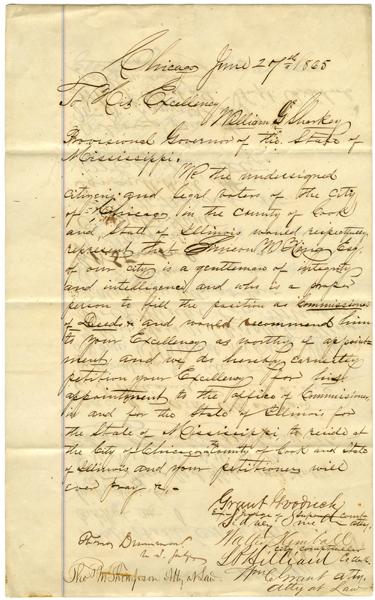 Chicago June 27th 1865
To His Excellency
William L Sharkey
Provisional Governor of the State of
Mississippi.
We the undersigned
citizens and legal voters of the City
of Chicago, in the County of Cook
and State of Illinois would respectfully
represent that Simeon W King Esq.
of our city is a gentleman of integrity
and intelligence and who is a proper
person to fill the position as Commissioner
of Deeds & and would recommend him
to your Excellency as worthy of appoint-
ment, and we do hereby earnestly
petition your Excellency for his
appointment to the office of Commissioner
in and for the State of Illinois for
the State of Mississippi, to reside at
the City of Chicago County of Cook and State
of Illinois, and your petitioners will
ever pray &c.
Grant Goodrich
Judge of Superior Court
Sidney Atty.
Walter Kimball
City Comptroller
Hilliard
Wm atty
Atty at Law
Thomas Drummond
U.S. Judge
Thos M Thompson Atty at Law